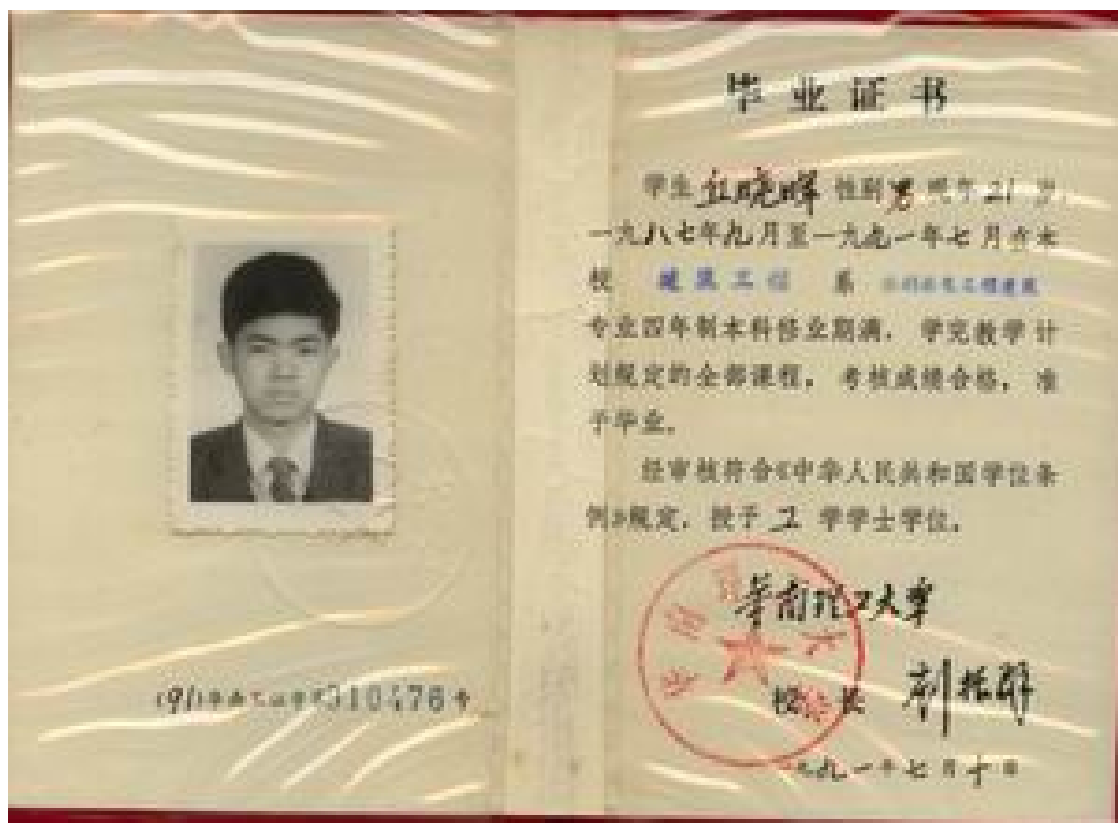 毕业证书
学生 丘晓晖 性别男 现年 21 岁,
一九八七年九月至一九九一年七月在本
校 建筑工程 系
专业四年制本科修业期满, 学完教学计
划规定的全部课程, 考核成绩合格, 准
予毕业。
经审核符合《中华人民共和国学位条
例》规定, 授予 工 学学士学位。
华南理工大学
校 长 刘振群
一九九一年七月十日
(91) 310476号